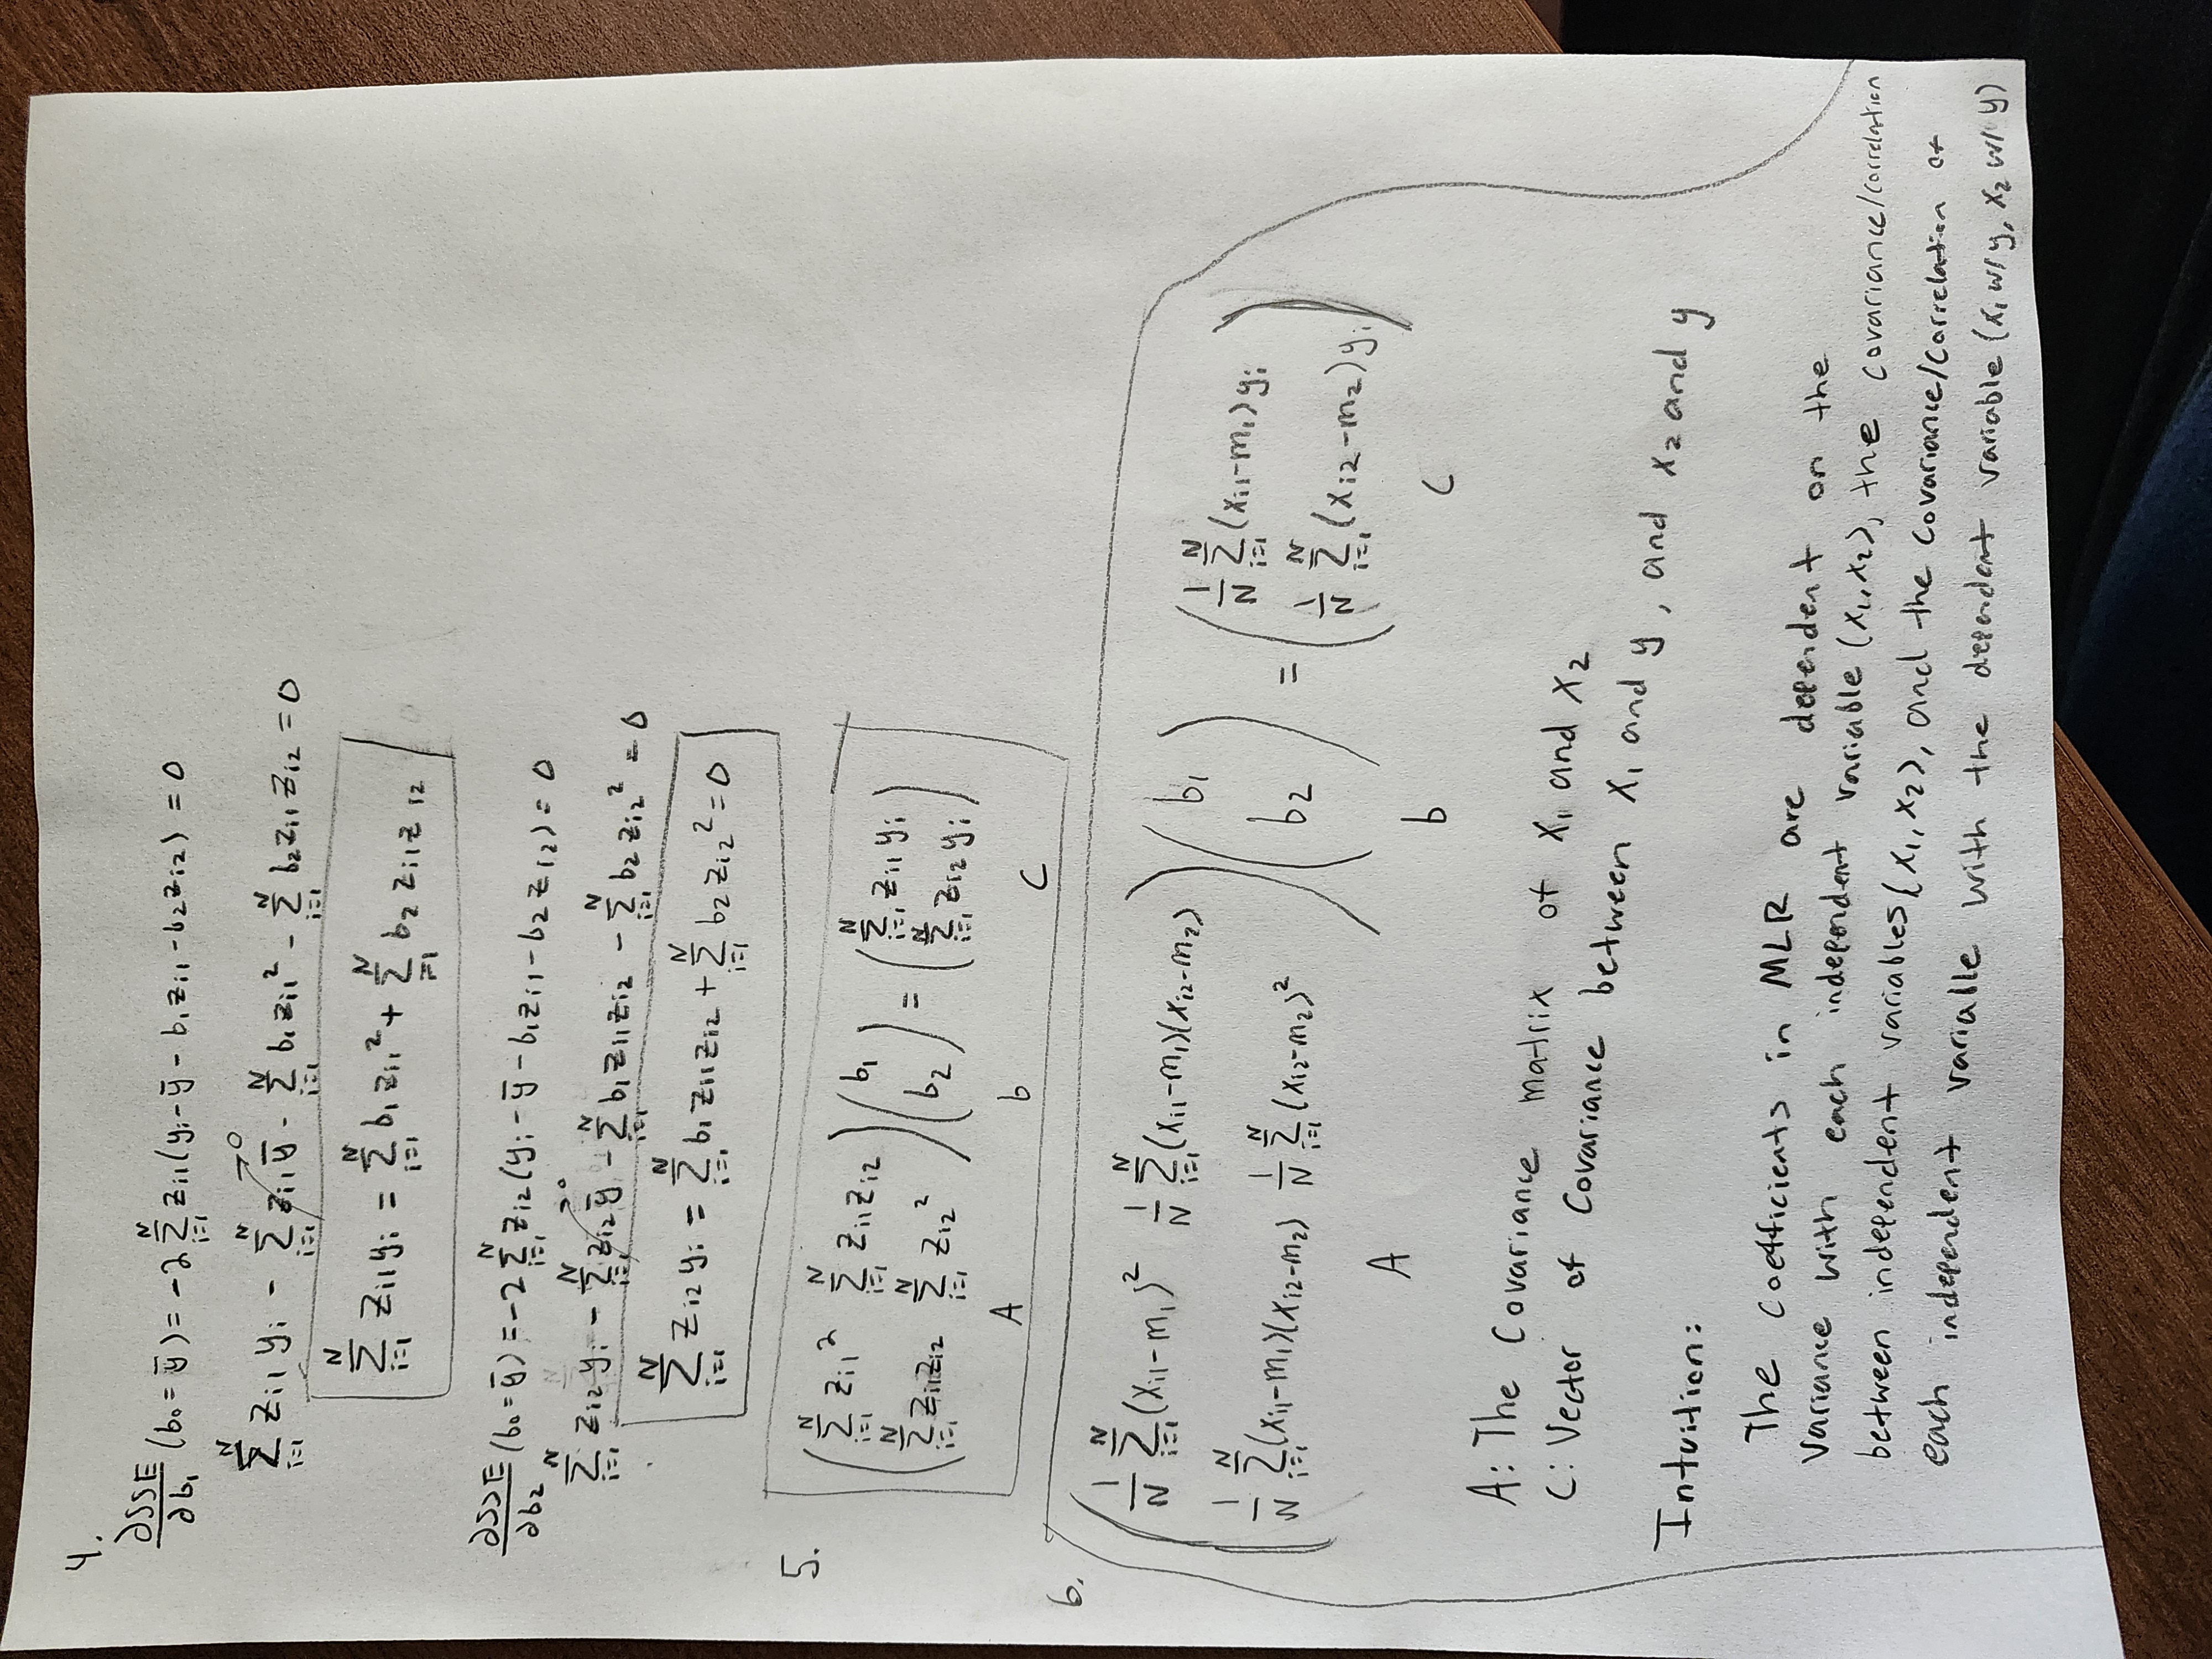 4.
∂SSE/∂b₁ (b₀ = ȳ) = -2 Σ_{i=1}^{N} z_{i1}(y_i - ȳ - b₁z_{i1} - b₂z_{i2}) = 0
Σ_{i=1}^{N} z_{i1} y_i - Σ_{i=1}^{N} z_{i1} ȳ → 0 - Σ_{i=1}^{N} b₁z_{i1}² - Σ_{i=1}^{N} b₂z_{i1} z_{i2} = 0
Σ_{i=1}^{N} z_{i1} y_i = Σ_{i=1}^{N} b₁ z_{i1}² + Σ_{i=1}^{N} b₂ z_{i1} z_{i2}
∂SSE/∂b₂ (b₀ = ȳ) = -2 Σ_{i=1}^{N} z_{i2}(y_i - ȳ - b₁z_{i1} - b₂z_{i2}) = 0
Σ_{i=1}^{N} z_{i2} y_i - Σ_{i=1}^{N} z_{i2} ȳ → 0 - Σ_{i=1}^{N} b₁z_{i1}z_{i2} - Σ_{i=1}^{N} b₂ z_{i2}² = 0
Σ_{i=1}^{N} z_{i2} y_i = Σ_{i=1}^{N} b₁ z_{i1} z_{i2} + Σ_{i=1}^{N} b₂ z_{i2}² = 0
5.
( Σ_{i=1}^{N} z_{i1}² Σ_{i=1}^{N} z_{i1}z_{i2} ) ( b₁ ) = ( Σ_{i=1}^{N} z_{i1} y_i )
( Σ_{i=1}^{N} z_{i1}z_{i2} Σ_{i=1}^{N} z_{i2}² ) ( b₂ ) ( Σ_{i=1}^{N} z_{i2} y_i )
A b C
6.
( 1/N Σ_{i=1}^{N} (x_{i1}-m₁)² 1/N Σ_{i=1}^{N} (x_{i1}-m₁)(x_{i2}-m₂) ) ( b₁ ) = ( 1/N Σ_{i=1}^{N} (x_{i1}-m₁)y_i )
( 1/N Σ_{i=1}^{N} (x_{i1}-m₁)(x_{i2}-m₂) 1/N Σ_{i=1}^{N} (x_{i2}-m₂)² ) ( b₂ ) ( 1/N Σ_{i=1}^{N} (x_{i2}-m₂)y_i )
A b C
A: The Covariance matrix of x₁ and x₂
C: Vector of Covariance between x₁ and y, and x₂ and y
Intuition:
The coefficients in MLR are dependent on the
Variance with each independent variable (x₁, x₂), the covariance/correlation
between independent variables (x₁, x₂), and the covariance/correlation of
each independent variable with the dependent variable (x₁ w/ y, x₂ w/ y)